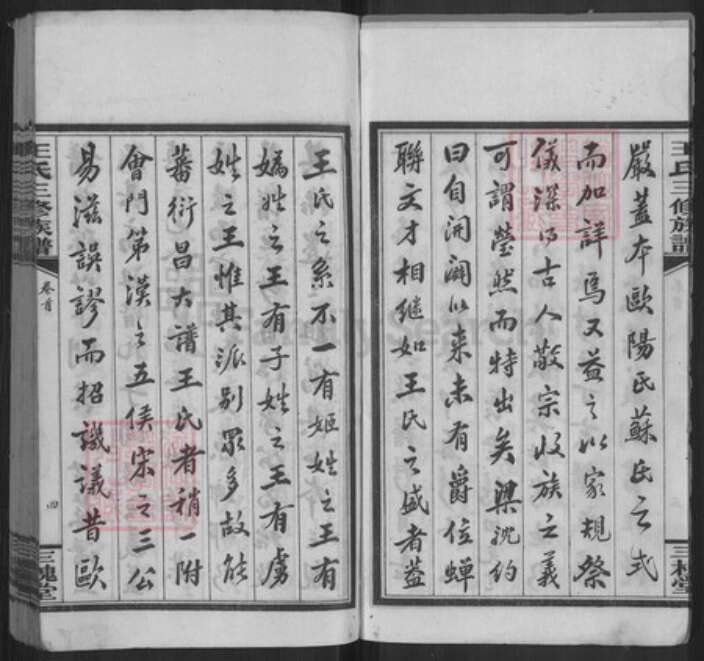 王氏三修族譜
三槐堂
嚴蓋本歐陽氏蘇氏之式
而加詳焉又益之以家規祭
儀深得古人敬宗收族之義
可謂瑩然而特出矣梁沈約
曰自開闢以來未有爵位蟬
聯文才相繼如王氏之盛者蓋
王氏之系不一有姬姓之王有
媯姓之王有子姓之王有虜
姓之王惟其派別眾多故能
蕃衍昌大譜王氏者稍一附
會門第漢之五侯宋之三公
易滋誤謬而招譏議昔歐
王氏三修族譜
卷首
四
三槐堂